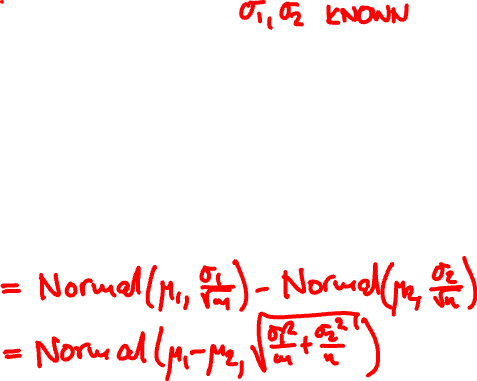 σ₁, σ₂ KNOWN
= Normal(μ₁, σ₁/√m) - Normal(μ₂, σ₂/√n)
= Normal(μ₁-μ₂, √(σ₁²/m + σ₂²/n))